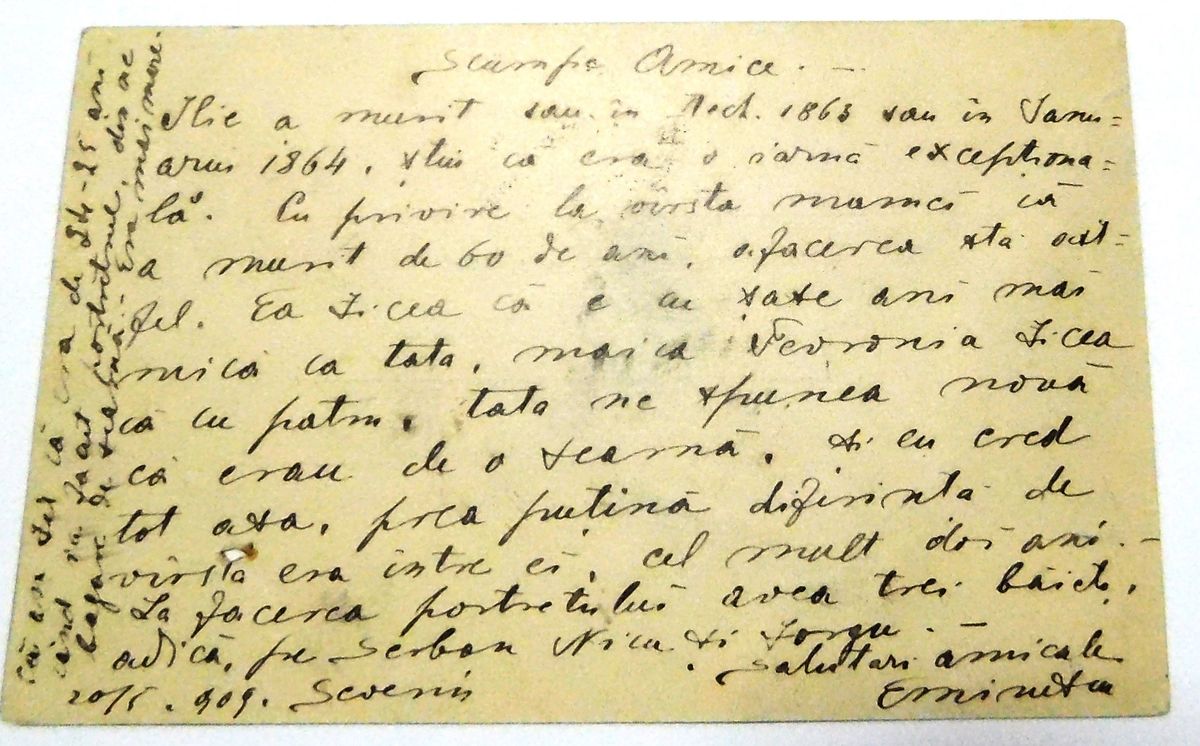 Scumpe Amice. —
Ilie a murit sau in Dech. 1863 sau in Ianu=
arus 1864, stiu ca era o iarnă excepționa=
lă. Cu privire la vîrsta mamei că
a murit de 60 de ani, afacerea stă ast=
fel. Ea zicea că e cu șase ani mai
mică ca tata, maica Fevronia zicea
că cu patru, tata ne spunea nouă
că erau de o seamă, si eu cred
tot asa, prea puțină difirintă de
vîrsta era intre ei, cel mult doi ani. —
La facerea portretului avea trei băieți,
adică, pe Serban Nicu si Iorgu.
Salutari amicale
20/5. 909. Severin Eminescu
că era de 24-25 ani
cind portretul, din ne
bagare de seamă. Era mai mare.